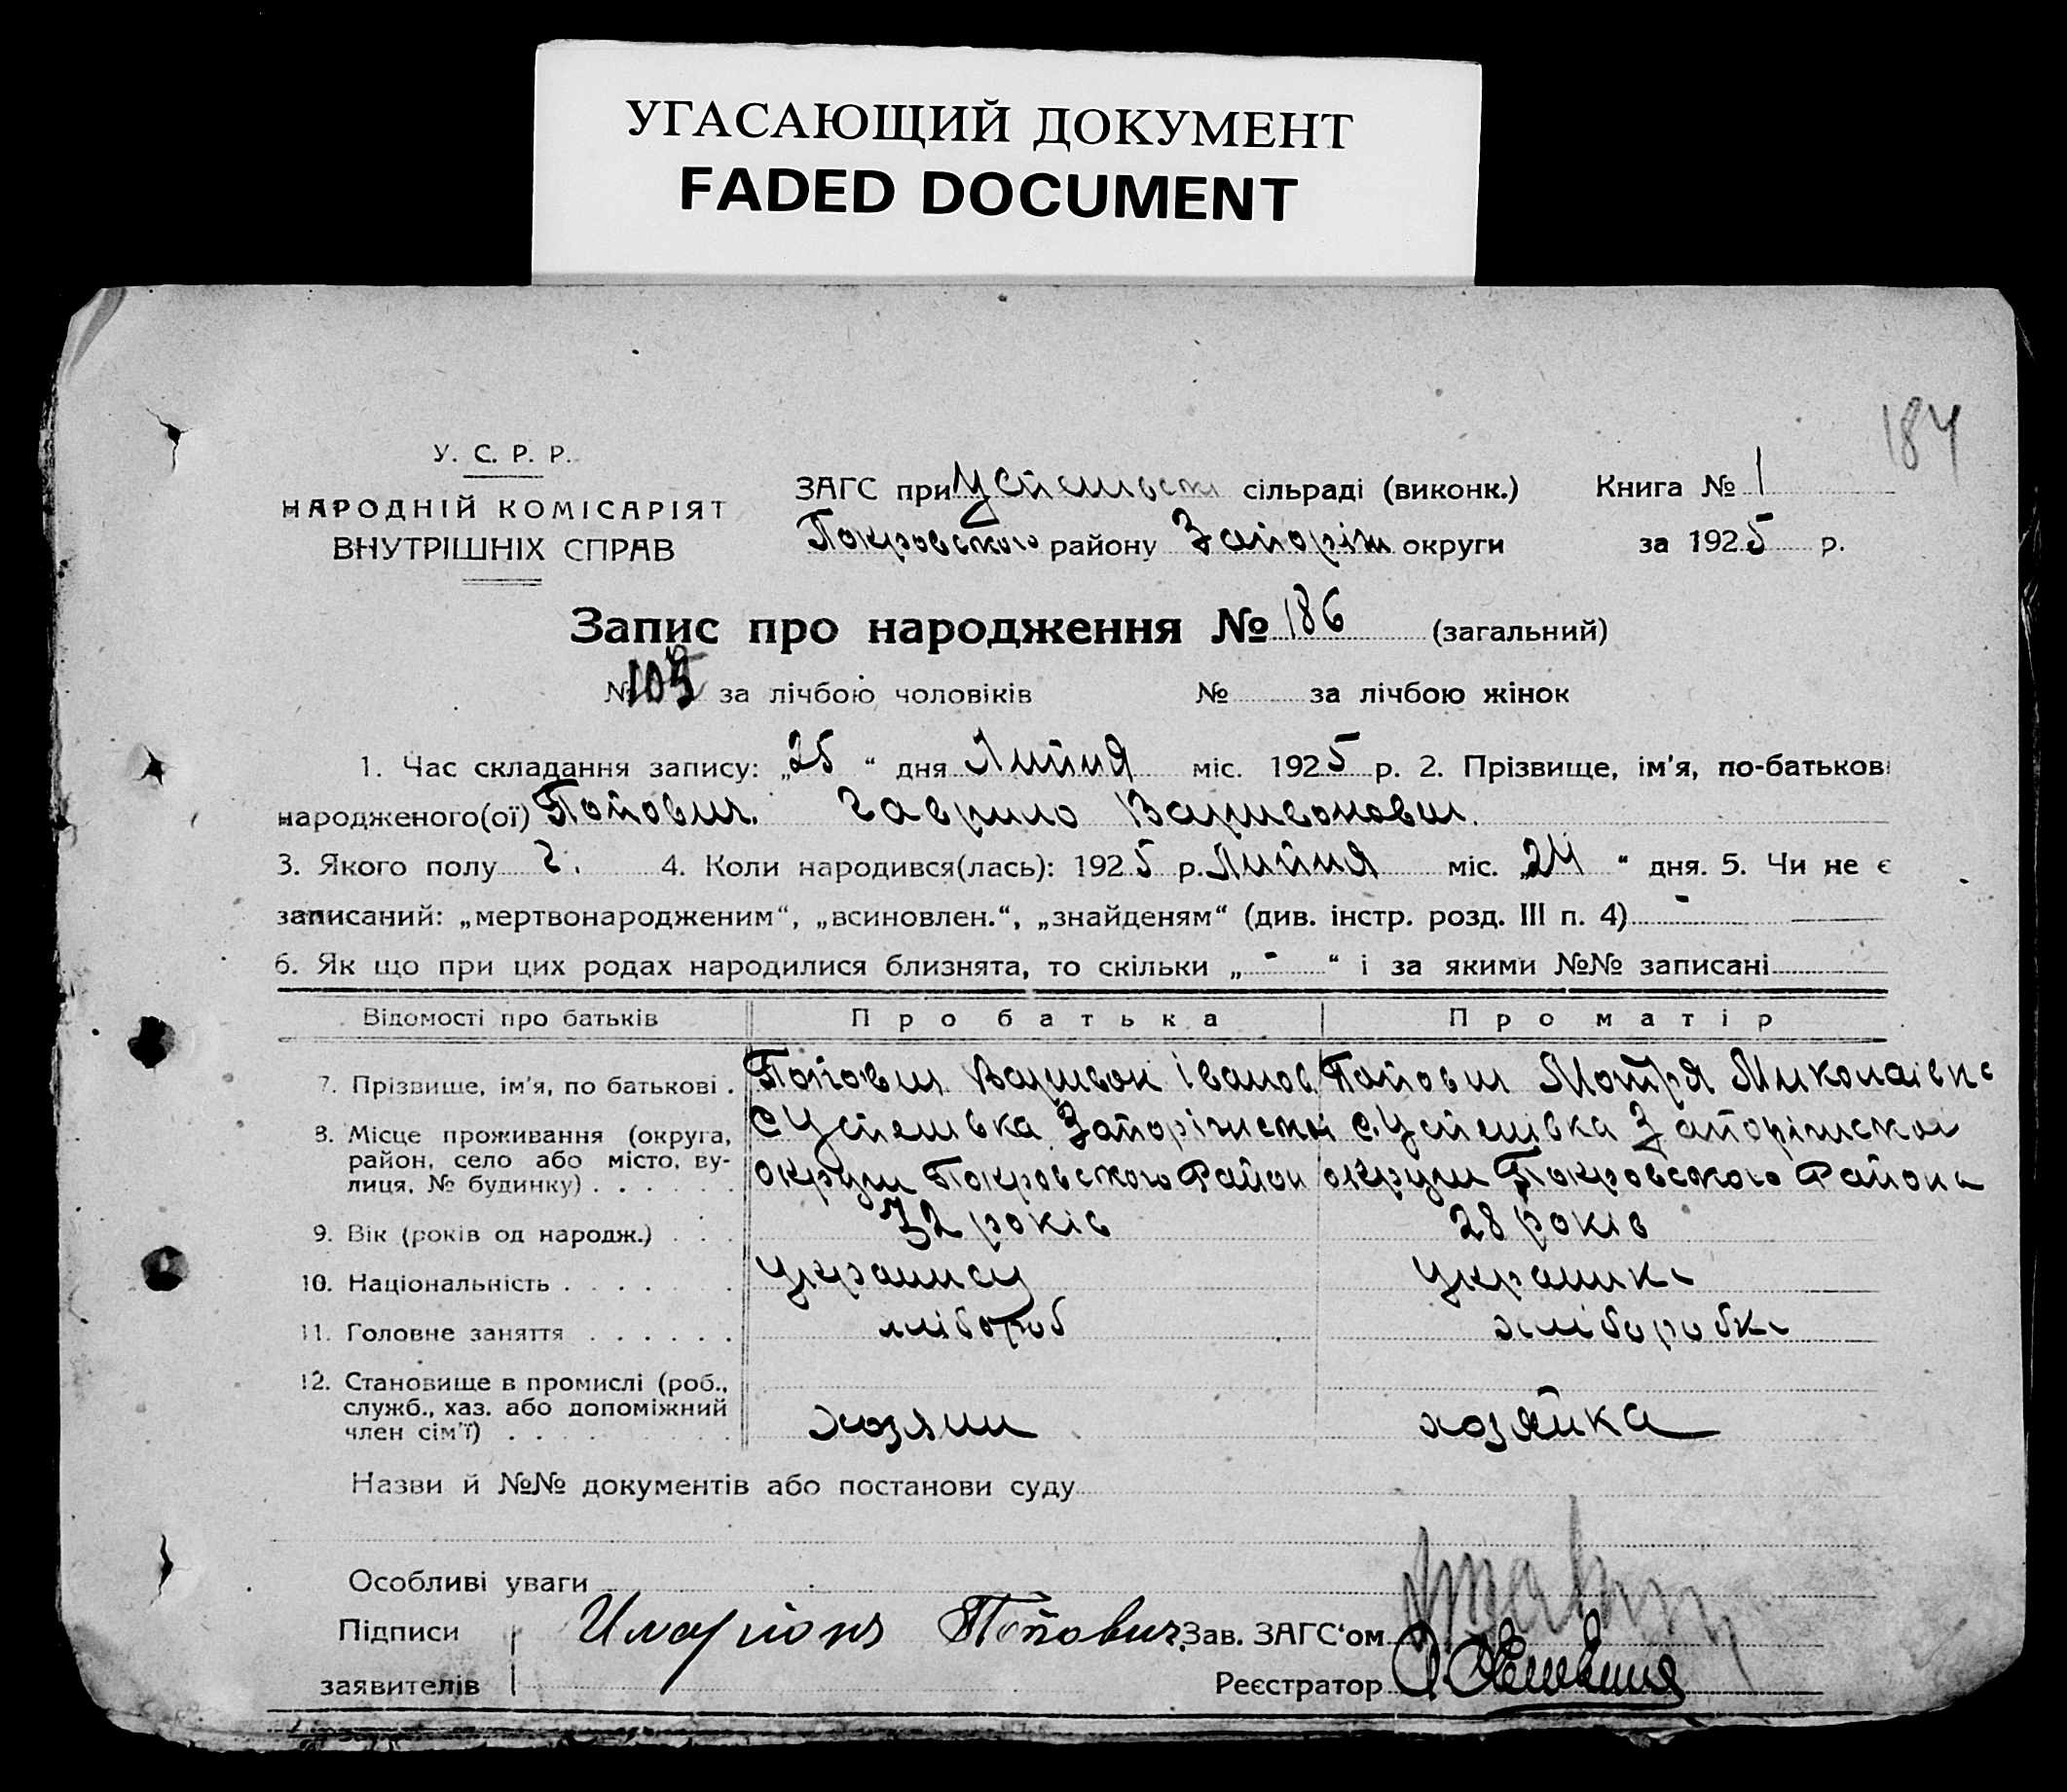 УГАСАЮЩИЙ ДОКУМЕНТ
FADED DOCUMENT
184
У. С. Р. Р.
НАРОДНІЙ КОМІСАРІЯТ
ВНУТРІШНІХ СПРАВ
ЗАГС при сільраді (виконк.) Книга № 1
Покровського району Запоріж округи за 1925 р.
Запис про народження № 186 (загальний)
№ за лічбою чоловіків № за лічбою жінок
1. Час складання запису: „25“ дня Липня міс. 1925 р. 2. Прізвище, ім'я, по-батькові
народженого(ої) Попович. Гаврило
3. Якого полу ч. 4. Коли народився(лась): 1925 р. Липня міс. „24“ дня. 5. Чи не є
записаний: „мертвонародженим“, „всиновлен.“, „знайденям“ (див. інстр. розд. III п. 4) -
6. Як що при цих родах народилися близнята, то скільки „ - “ і за якими №№ записані
Відомості про батьків Про батька Про матір
7. Прізвище, ім'я, по батькові . Попович Іванов Попович Мотря Миколаівна
8. Місце проживання (округа, район, село або місто, вулиця, № будинку) . . . . . . с Успенівка округи Покровського Район с. Успенівка округи Покровського Района
9. Вік (років од народж.) . . . 32 років 28 років
10. Національність . . . . . . . Українец Українка
11. Головне заняття . . . . . . хлібороб хліборобка
12. Становище в промислі (роб.,
служб., хаз. або допоміжний
член сім'ї) . . . . . . . . . хозяин хозяйка
Назви й №№ документів або постанови суду
Особливі уваги
Підписи Иларіонъ Попович. Зав. ЗАГС‘ом
заявителів Реєстратор